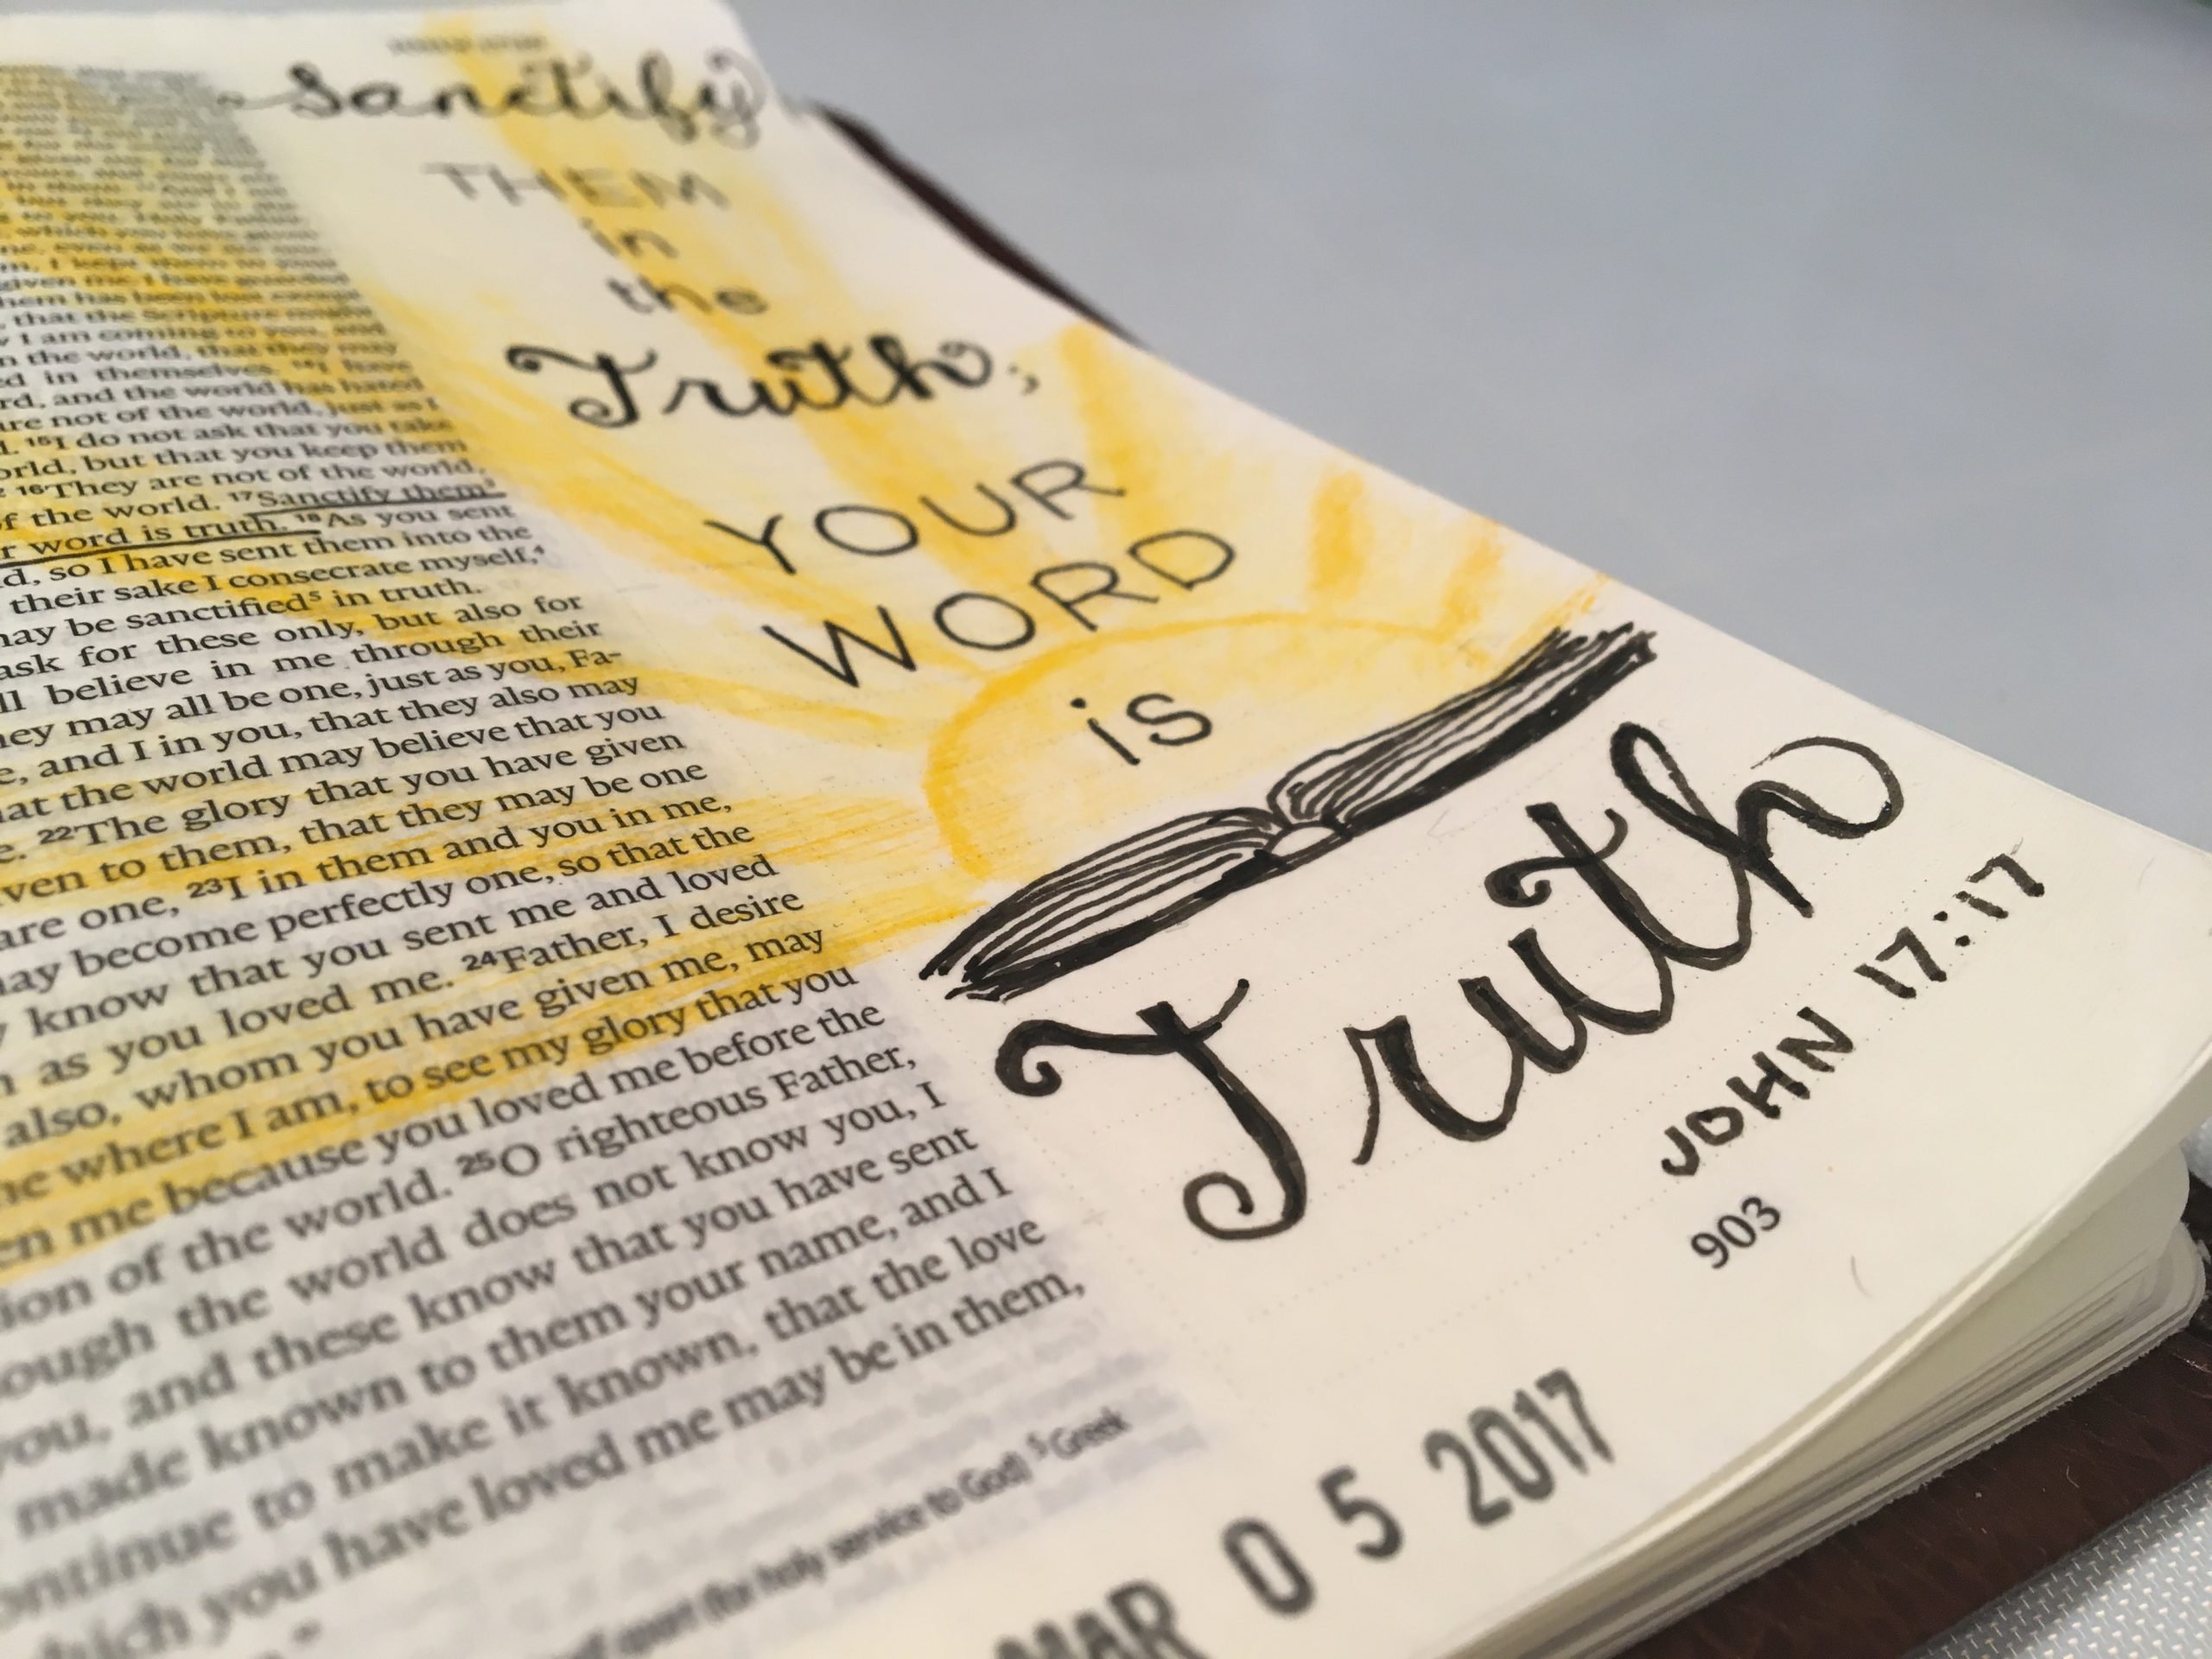 Sanctify
THEM
in
the
Truth;
YOUR
WORD
is
Truth
JOHN 17:17
903
MAR 05 2017
that the Scripture
I am coming to you, and
n the world, that they may
ed in themselves. 14I have
rd, and the world has hated
are not of the world, just as I
15I do not ask that you take
orld, but that you keep them
16They are not of the world,
f the world. 17Sanctify them
r word is truth. 18As you sent
d, so I have sent them into the
their sake I consecrate myself,4
may be sanctified5 in truth.
ask for these only, but also for
ll believe in me through their
hey may all be one, just as you, Fa-
e, and I in you, that they also may
hat the world may believe that you
e. 22The glory that you have given
ven to them, that they may be one
are one, 23I in them and you in me,
may become perfectly one, so that the
y know that you sent me and loved
n as you loved me. 24Father, I desire
also, whom you have given me, may
me where I am, to see my glory that you
en me because you loved me before the
tion of the world. 25O righteous Father,
ough the world does not know you, I
you, and these know that you have sent
made known to them your name, and I
ontinue to make it known, that the love
hich you have loved me may be in them,
apart (for holy service to God) 5 Greek